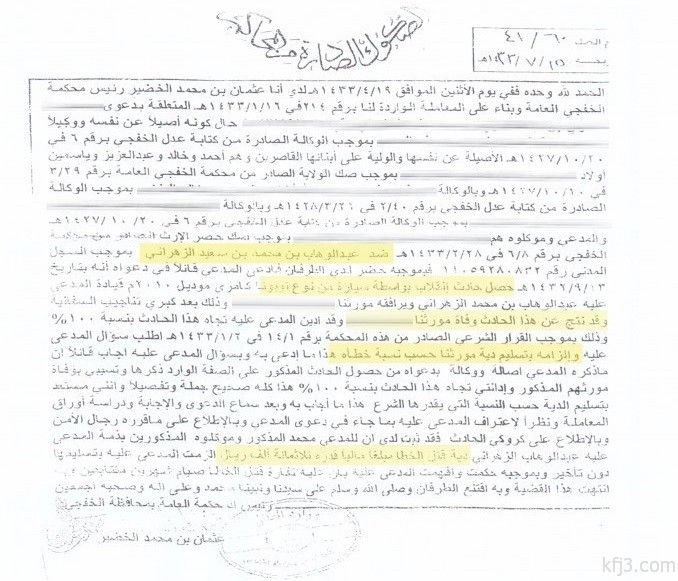 الصكوك الصادرة من المحاكم
٤١/٦٠
١٤٣٣/٧/٢٥هـ
الحمد لله وحده ففي يوم الأثنين الموافق ١٤٣٣/٤/١٩هـ لدي أنا عثمان بن محمد الخضير رئيس محكمة
الخفجي العامة وبناء على المعاملة الواردة لنا برقم ٢١٤ في ١٤٣٣/١/١٦هـ المتعلقة بدعوى
حال كونه أصيلاً عن نفسه ووكيلاً
بموجب الوكالة الصادرة من كتابة عدل الخفجي برقم ٦ في
١٤٢٧/١٠/٢٠هـ الأصيلة عن نفسها والولية على أبنائها القاصرين وهم أحمد وخالد وعبدالعزيز وياسمين
أولاد بموجب صك الولاية الصادر من محكمة الخفجي العامة برقم ٣/٢٩
في ١٤٢٧/١٠/١٠هـ وبالوكالة بموجب الوكالة
الصادرة من كتابة عدل الخفجي برقم ٢/٤٠ في ١٤٢٨/٣/٢١هـ وبالوكالة
بموجب الوكالة الصادرة من كتابة عدل الخفجي برقم ٦ في ١٤٢٧/١٠/٢٠هـ
والمدعي وموكلوه هم بموجب صك حصر الإرث الصادر من محكمة
الخفجي برقم ٦/٨ في ١٤٣٣/٢/٢٨هـ ضد عبدالوهاب بن محمد بن سعيد الزهراني بموجب السجل
المدني رقم ١٠٠٥٩٢٨٠٨٣٢ فبموجبه حضر لدي الطرفان فادعى المدعي قائلاً في دعواه أنه بتاريخ
١٤٣٢/٩/١٣هـ حصل حادث إنقلاب بواسطة سيارة من نوع تويوتا كامري موديل ٢٠١٠م قيادة المدعى
عليه عبدالوهاب بن محمد الزهراني ويرافقه مورثنا وذلك بعد كبري تناجيب السفانية
وقد نتج عن هذا الحادث وفاة مورثنا وقد ادين المدعى عليه تجاه هذا الحادث بنسبة ١٠٠%
وذلك بموجب القرار الشرعي الصادر من هذه المحكمة برقم ١٤/١ في ١٤٣٣/١/٢هـ اطلب سؤال المدعى
عليه وإلزامه بتسليم دية مورثنا حسب نسبة خطأه هذا ما ادعي به وبسؤال المدعى عليه اجاب قائلاً ان
ماذكره المدعي اصالة ووكالة بدعواه من حصول الحادث المذكور على الصفة الوارد ذكرها وتسببي بوفاة
مورثهم المذكور وإدانتي تجاه هذا الحادث بنسبة ١٠٠% هذا كله صحيح جملة وتفصيلاً وانني مستعد
بتسليم الدية حسب النسبة التي يقدرها الشرع هذا ما أجاب به وبعد سماع الدعوى والإجابة ودراسة أوراق
المعاملة ونظراً لاعتراف المدعى عليه بما جاء في دعوى المدعي وبالإطلاع على ماقرره رجال الأمن
وبالإطلاع على كروكي الحادث فقد ثبت لدي ان للمدعي محمد المذكور وموكلوه المذكورين بذمة المدعى
عليه عبدالوهاب الزهراني دية قتل الخطا مبلغا ماليا قدره ثلاثمائة ألف ريال الزمت المدعى عليه بتسليمها
دون تأخير وبموجبه حكمت وأفهمت المدعى عليه بان عليه كفارة قتل الخطا صيام شهرين متتابعين
انتهت هذا القضية وبه اقتنع الطرفان وصلى الله وسلم على سيدنا ونبينا محمد وعلى اله وصحبه اجمعين
رئيس المحكمة العامة بمحافظة الخفجي
عثمان بن محمد الخضير
kfj3.com